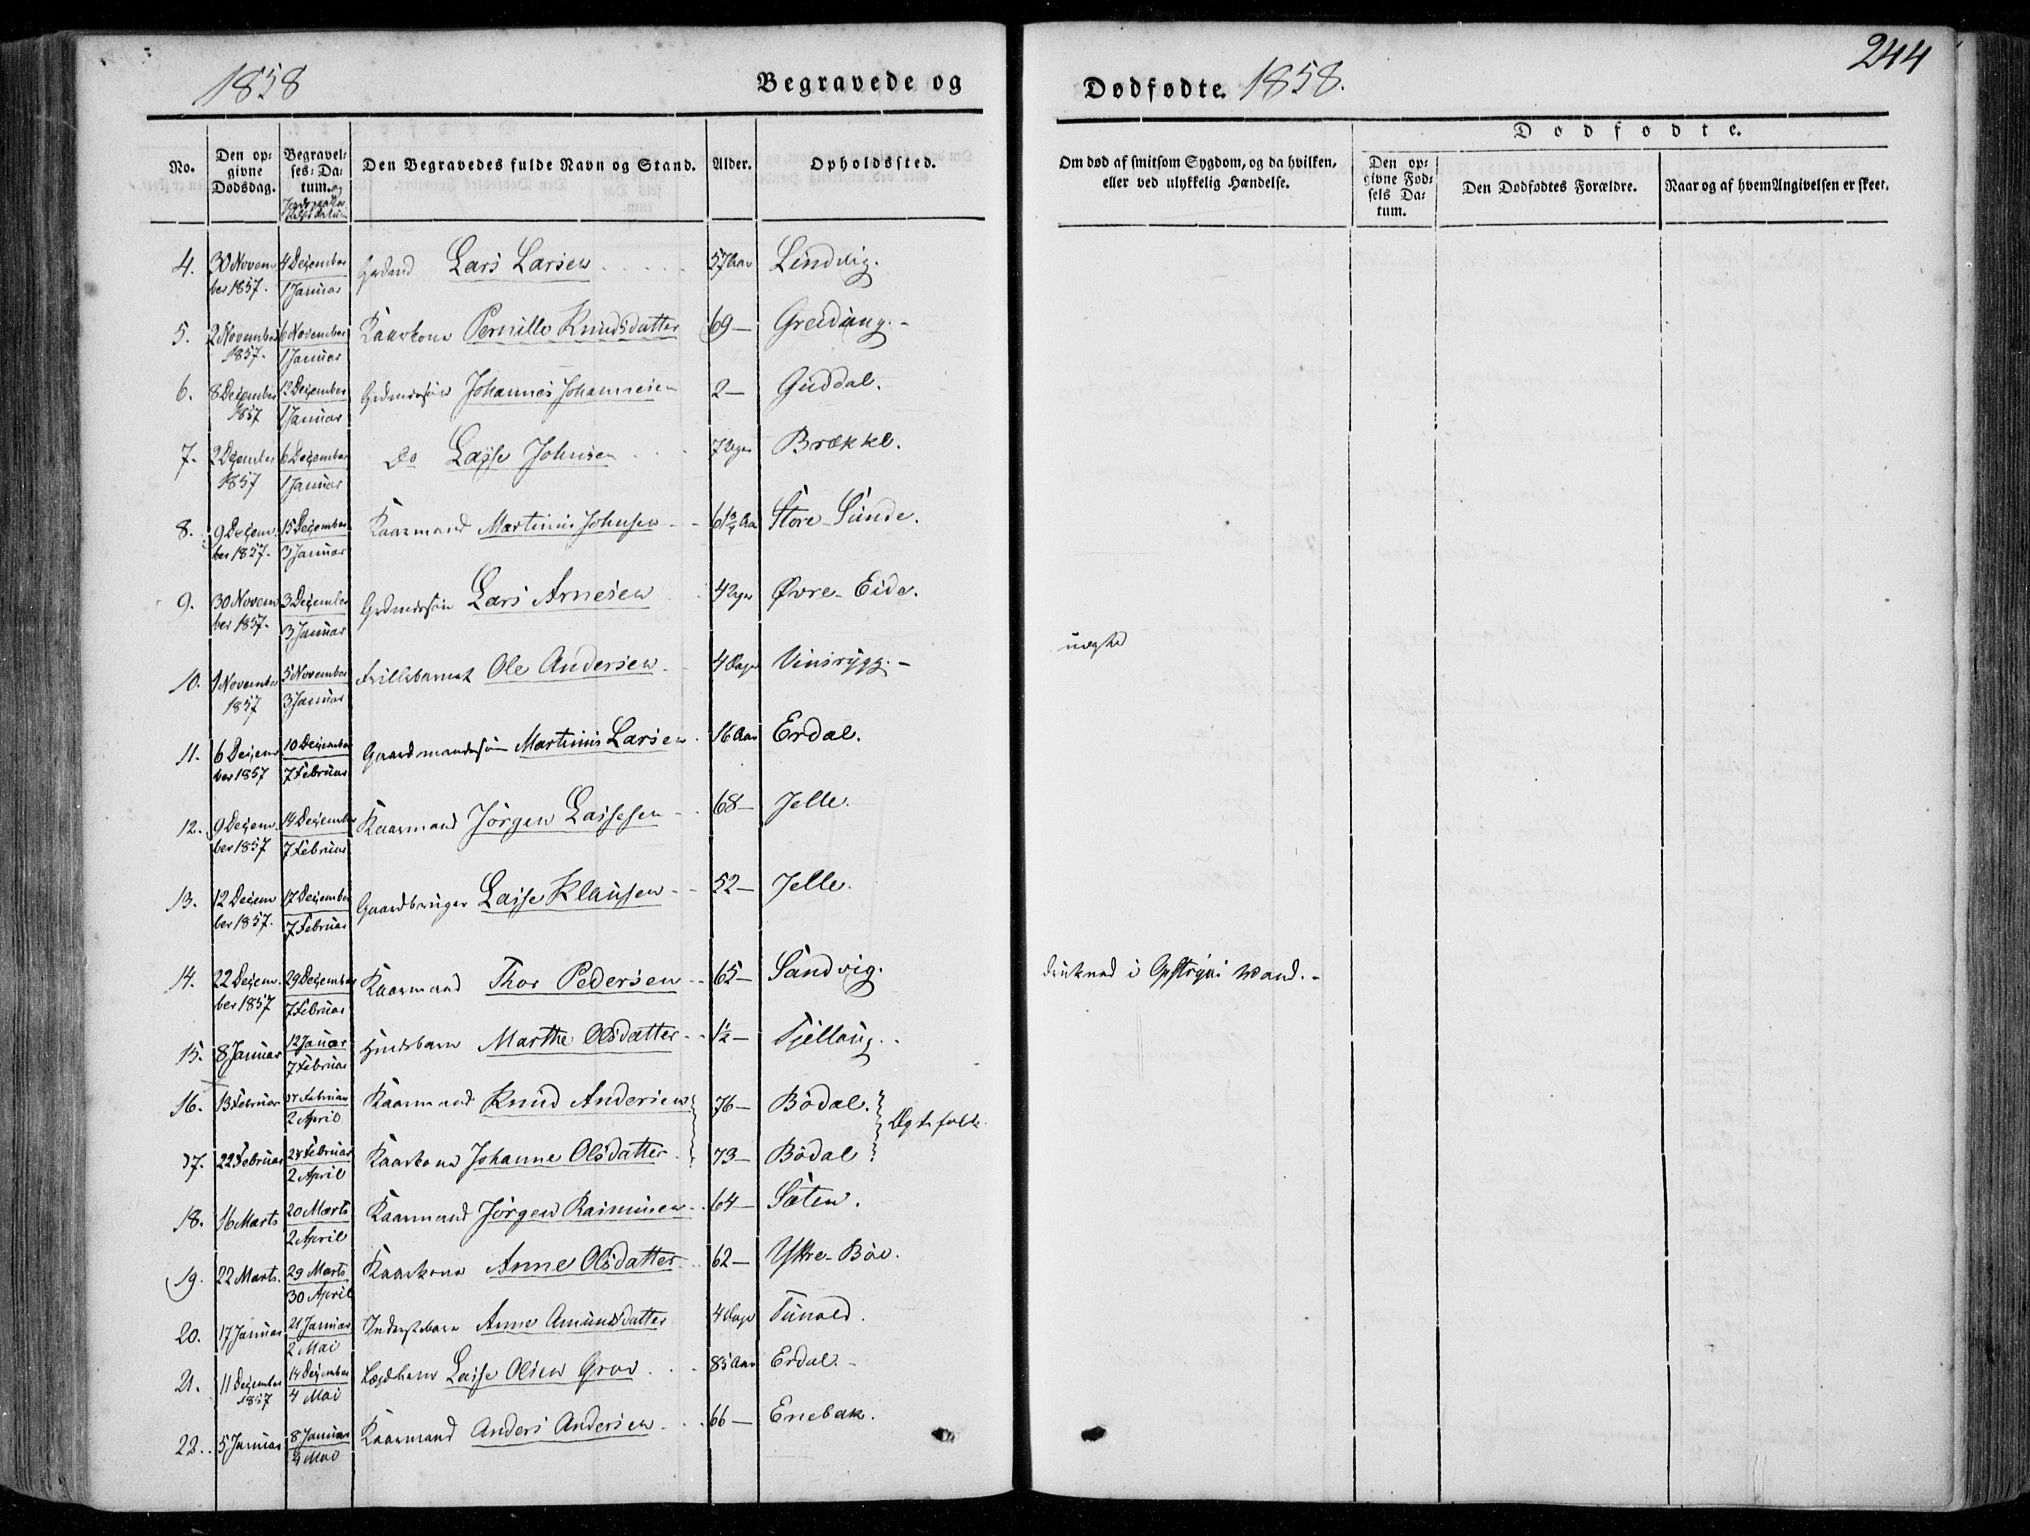 1858 Begravede og
Dødfødte. 1858. 244
No. Den opgivne Dødsdag. Begravelses-Datum. og Den Begravedes fulde Navn og Stand. Alder. Opholdssted.
Om død af smitsom Sygdom, og da hvilken, eller ved ulykkelig Hændelse. Dødfødte. Den opgivne Fødsels Datum. Den Dødfødtes Forældre. Naar og af hvem Angivelsen er skeet.
4. 30 November 1857. 4 December 1 Januar Lars Larsen 57 Aar Lindvig.
5. 2 November 1857. 6 November 1 Januar Kaarkone Pernille Knudsdatter 69 — Greidung. -
6. 8 December 1857 12 December 1 Januar Johannes Johannesen 2 — Guddal.
7. 2 December 1857 6 December 1 Januar Do Lasse Johnsen 7 Brække.
8. 9 December 1857. 15 December 3 Januar Kaarmand Martinus Johnsen 61 3/4 Aar Store-Sunde.
9. 30 November 1857. 3 December 3 Januar Lars Arnesen 4 Øvre-Eide.
10. 1 November 1857 5 November 3 Januar Ole Andersen 4 Dage Vinsrygg. - uægte
11. 6 December 1857 10 December 7 Februar Gaardmandssøn Martinus Larsen 16 Aar Erdal.
12. 9 December 1857 14 December 7 Februar Kaarmand Jørgen Lassesen 68 — Jelle.
13. 12 December 1857. 17 December 7 Februar Gaardbruger Lasse Klausen 52 — Jelle.
14. 22 December 1857 29 December 7 Februar Kaarmand Thor Pedersen 65 — Sandvig. druknad i Vand. -
15. 8 Januar 12 Januar 7 Februar Marthe Olsdatter 1 1/2 — Tjellaug.
16. 13 Februar Februar 2 April Kaarmand Knud Andersen 76 — Bødal. Ægtefolk.
17. 22 Februar Februar 2 April Kaarkone Johanne Olsdatter 73 — Bødal
18. 16 Marts 20 Marts 2 April Kaarmand Jørgen Rasmusen 64 — Sæten.
19. 22 Marts. 29 Marts 30 April Kaarkone Anne Olsdatter 62 — Yttre-Bøe.
20. 17 Januar 21 Januar 2 Mai Anne Amundsdatter 4 Dage Tunold.
21. 11 December 1857 14 December 4 Mai Lasse Olsen Grov 85 Aar Erdal. -
22. 5 Januar 8 Januar 4 Mai Kaarmand Anders Andersen 66 — Enebak.